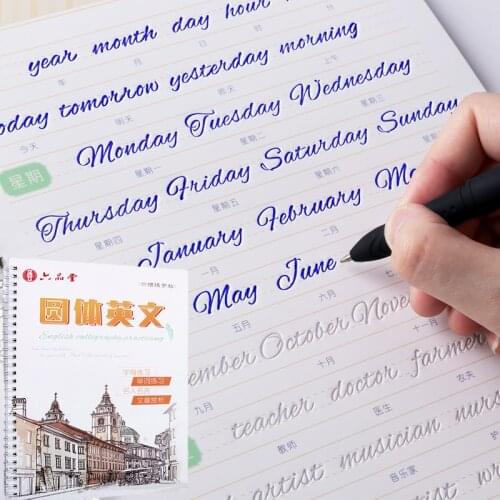 year month day hour
年 月 日 时
today tomorrow yesterday morning
今天 明天 昨天 上午
Monday Tuesday Wednesday
星期
星期一 星期二 星期三
Thursday Friday Saturday Sunday
星期四 星期五 星期六 星期日
January February Ma
一月 二月
May June
五月 六月 七月
ember October Novem
九月 十月 十一月
teacher doctor farmer
教师 医生 农夫
artist musician nurs
音乐家
artist writer
六品堂
圆体英文
English calligraphy practicing
字母练习
单词练习
名人名言
文章赏析